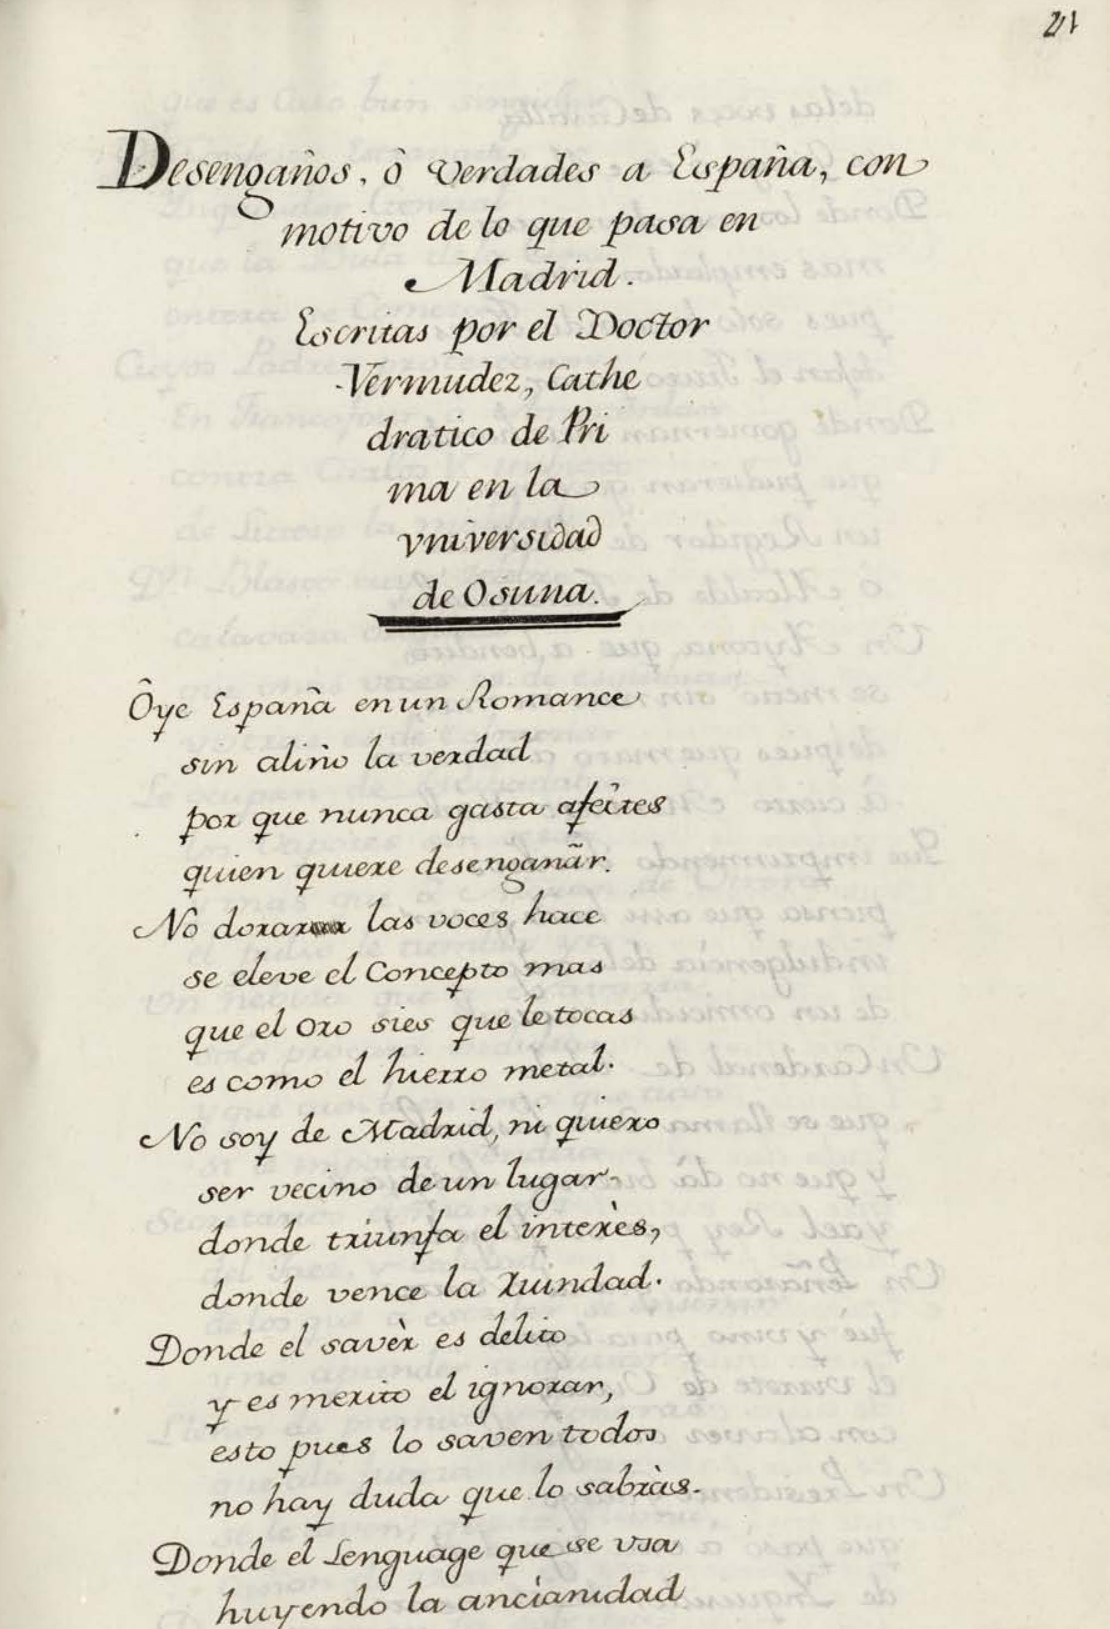 21
Desengaños, ô Verdades a España, con
motivo de lo que pasa en
Madrid.
Escritas por el Doctor
Vermudez, Cathe
dratico de Pri
ma en la
vniversidad
de Osuna.
Ôye España en un Romance
sin aliño la verdad
por que nunca gasta afeites
quien quiere desengañar.
No dorar las voces hace
se eleve el Concepto mas
que el oro sies que le tocas
es como el hierro metal.
No soy de Madrid, ni quiero
ser vecino de un lugar,
donde triunfa el interès,
donde vence la Ruindad.
Donde el savèr es delito
y es merito el ignorar,
esto pues lo saven todos
no hay duda que lo sabràs.
Donde el Lenguage que se vsa
huyendo la ancianidad